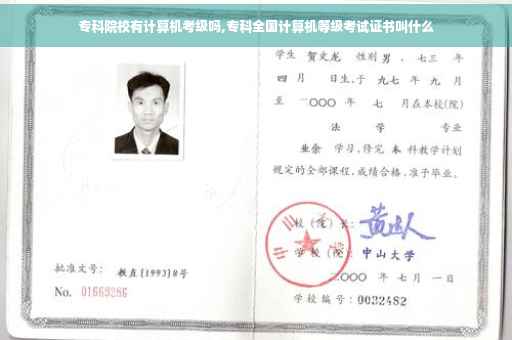 专科院校有计算机考级吗,专科全国计算机等级考试证书叫什么
学生 贺文龙 性别 男, 七三 年
四 月 日生,于 九七 年 九 月
至 二〇〇〇 年 七 月在本校(院)
法 学 专业
业余 学习,修完 本 科教学计划
规定的全部课程,成绩合格,准予毕业。
校(院)长:
学校(院):中山大学
二〇〇〇 年 七 月 一 日
批准文号: 教直(1993)8号
No. 01663286
学校编号:0032482